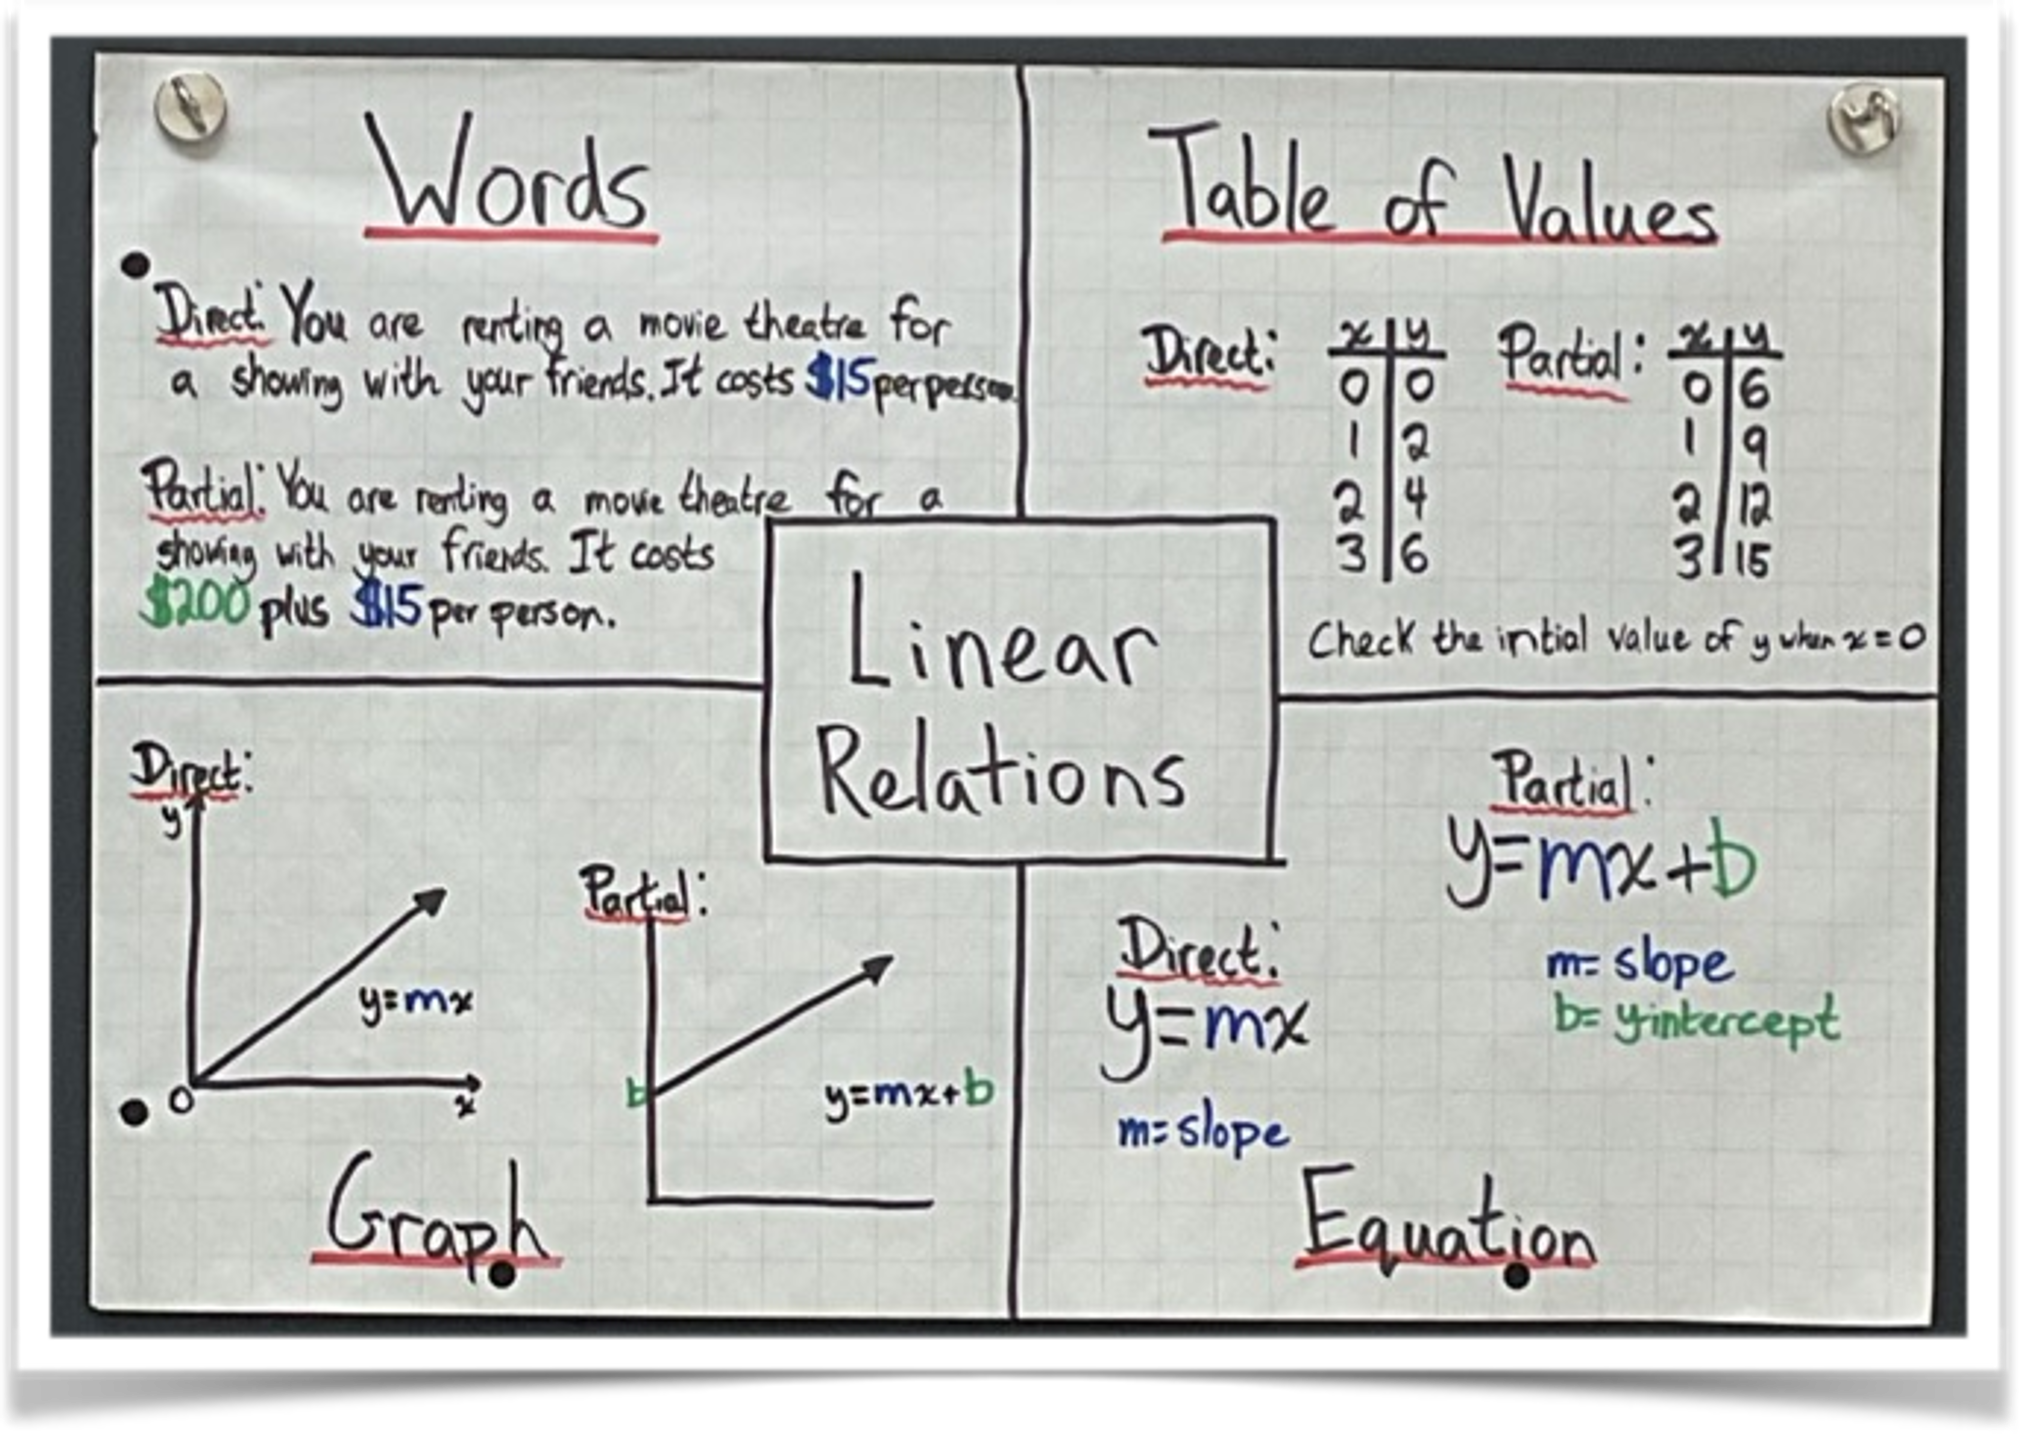 Words
Direct: You are renting a movie theatre for
a showing with your friends. It costs $15 per person.
Partial: You are renting a movie theatre for a
showing with your friends. It costs
$200 plus $15 per person.
Table of Values
Direct:
x y
0 0
1 2
2 4
3 6
Partial:
x y
0 6
1 9
2 12
3 15
Check the intial value of y when x = 0
Linear
Relations
Direct:
y
y=mx
0
x
Partial:
b
y=mx+b
Graph
Partial:
y=mx+b
m= slope
b= y-intercept
Direct:
y=mx
m= slope
Equation